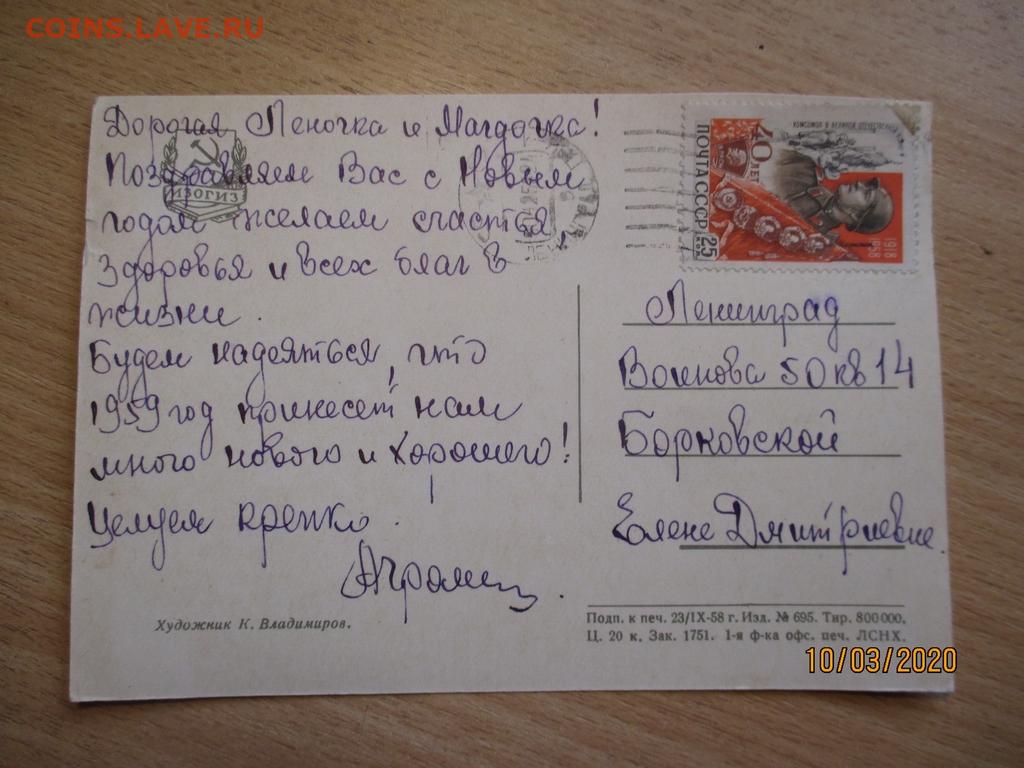 COINS.LAVE.RU
Дорогая Леночка и Магдочка!
Поздравляем Вас с Новым
годом желаем счастья,
здоровья и всех благ в
жизни.
Будем надеяться, что
1959 год принесёт нам
много нового и хорошего!
Целуем крепко.
ИЗОГИЗ
Художник К. Владимиров.
40 ЛЕТ
КОМСОМОЛ В ВЕЛИКОЙ ОТЕЧЕСТВЕННОЙ
ПОЧТА СССР
25
1918
1958
Ленинград
Воинова 50 кв 14
Борковской
Елене Дмитриевне.
Подп. к печ. 23/IX-58 г. Изд. № 695. Тир. 800 000.
Ц. 20 к. Зак. 1751. 1-я ф-ка офс. печ. ЛСНХ.
10/03/2020